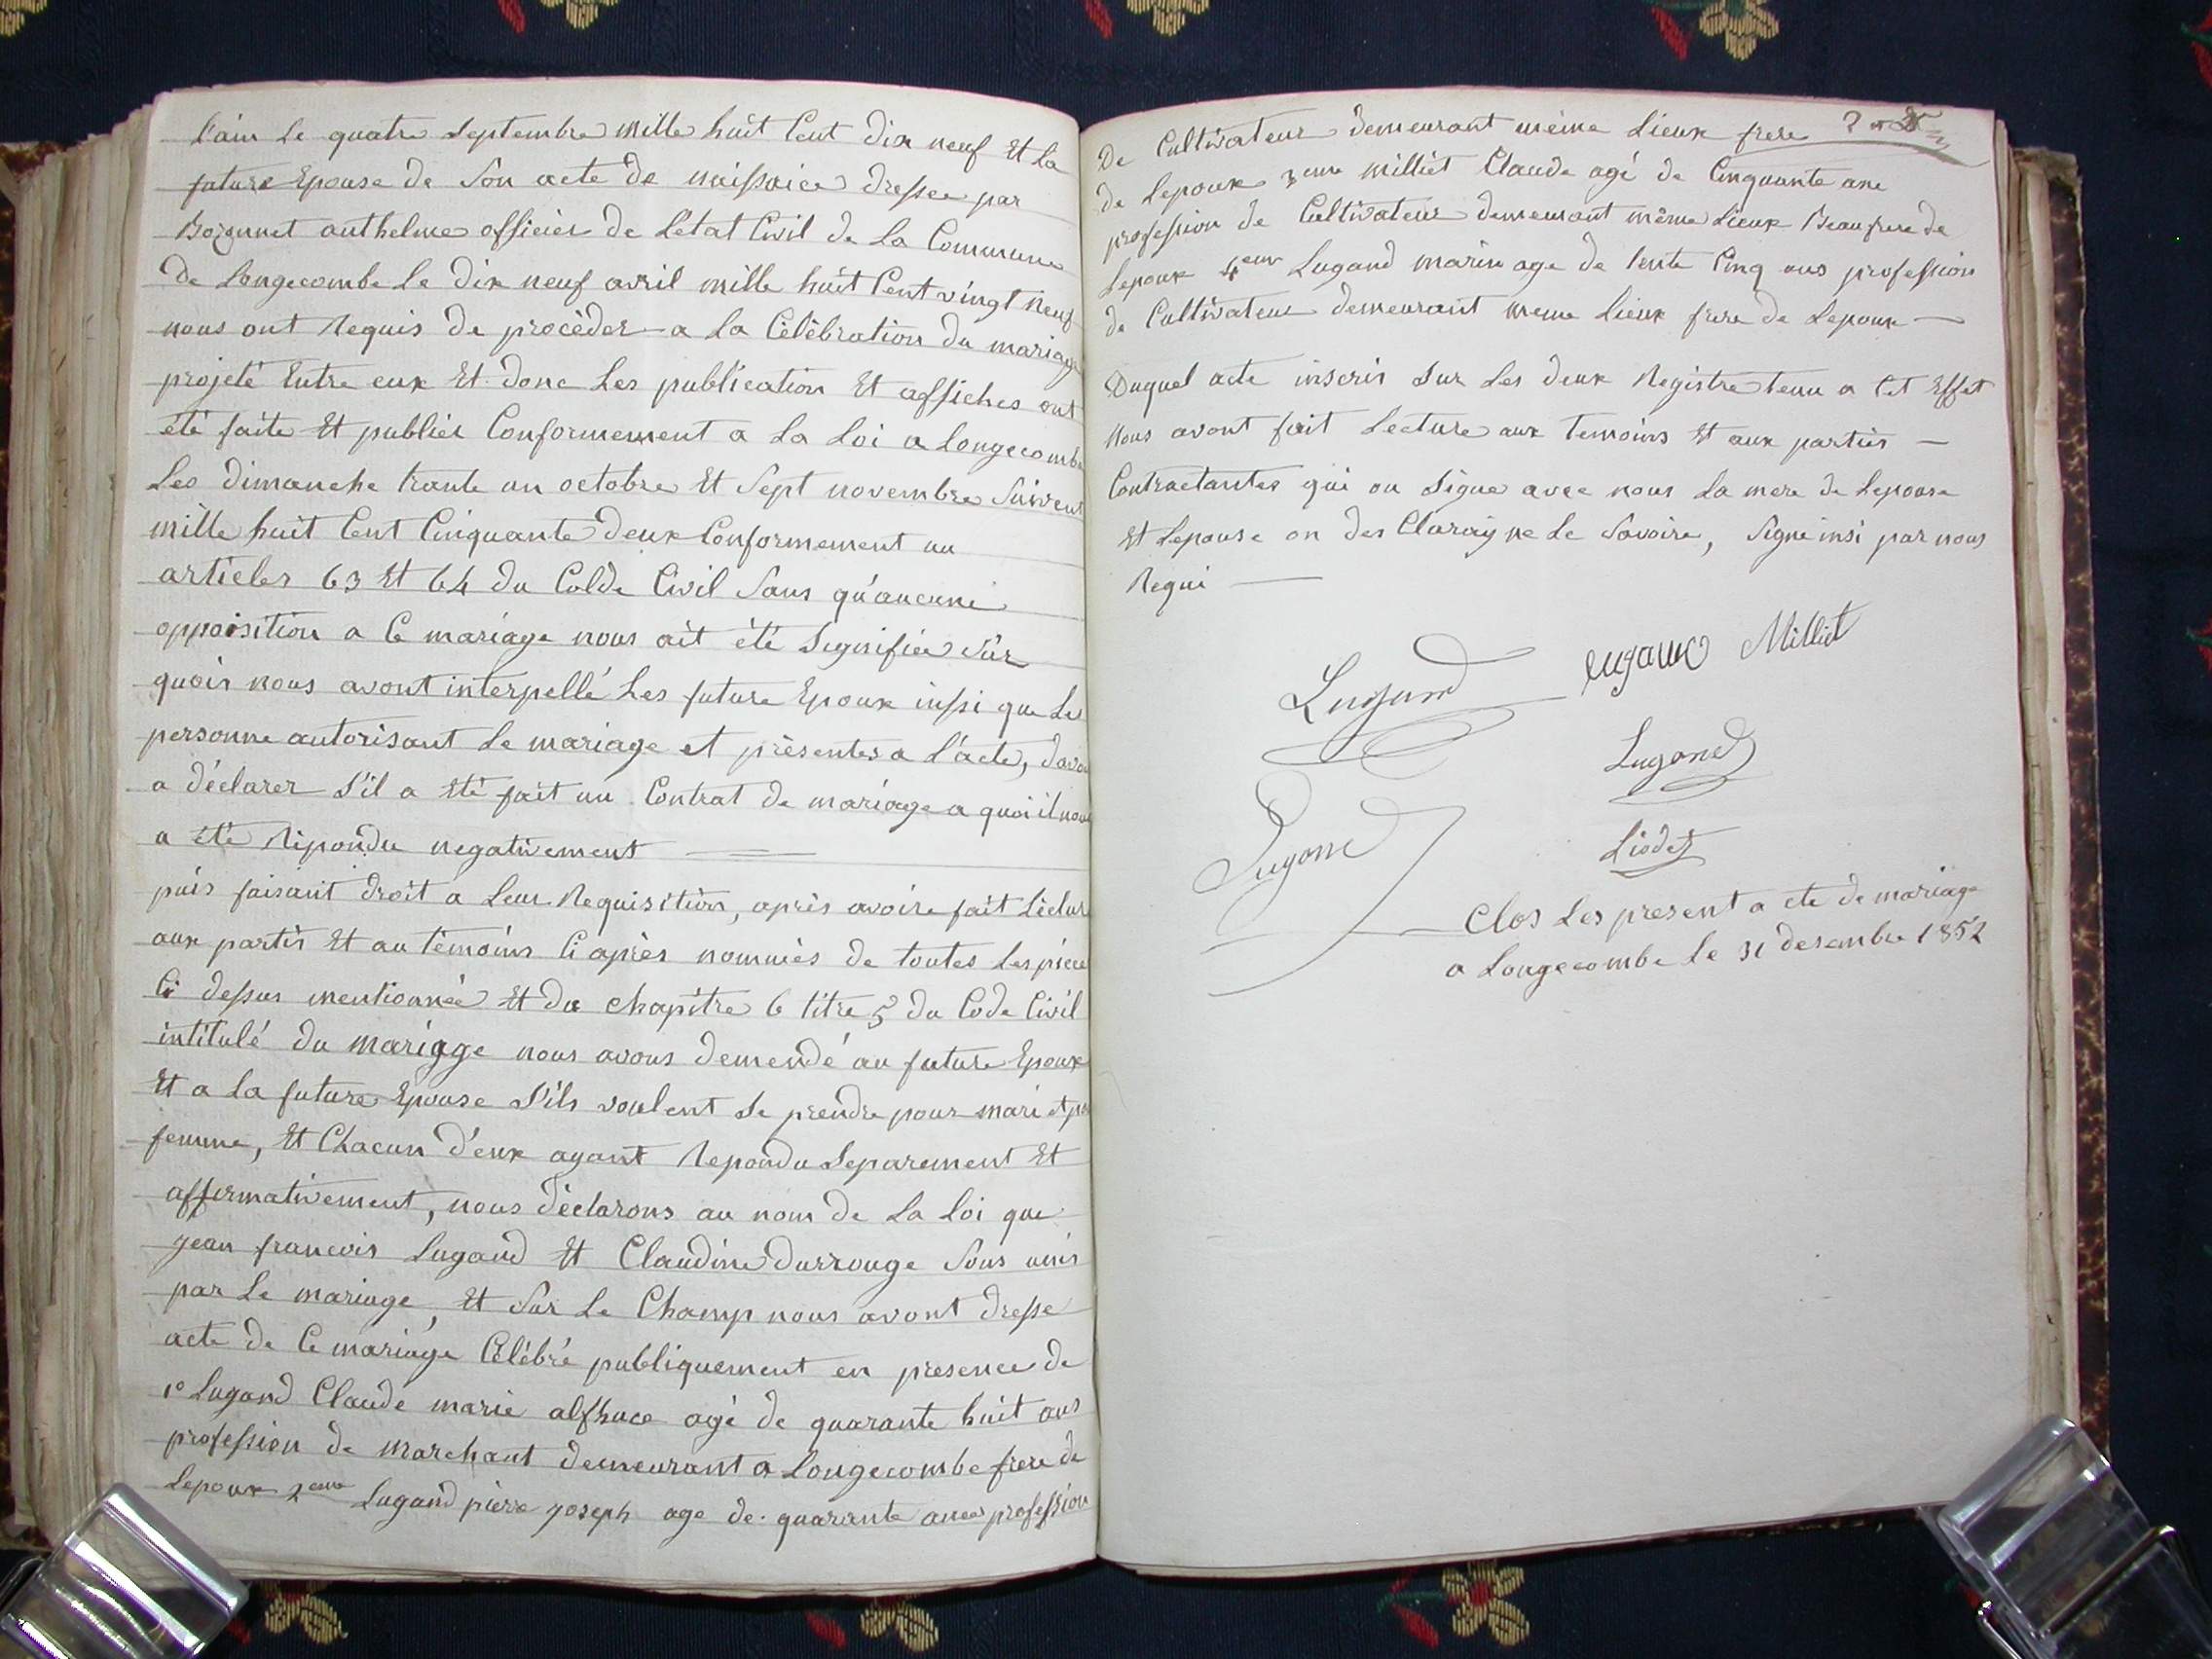 l'ain Le quatre Septembre mille huit Cent dix neuf Et La
future Epouse de Son acte de naissaice dressee par
anthelme officier de L'etat Civil de La Commune
De Longecombe Le dix neuf avril mille huit Cent vingt neuf
nous ont Requis de procéder a La Célébration du mariage
projeté Entre eux Et donc Les publication Et affiches ont
été faite Et publier Conformement a La Loi a Longecombe
Les dimanche trante un octobre Et Sept novembre Suivent
mille huit Cent Cinquante deux Conformement au
articles 63 Et 64 du Colde Civil Sans qu'aucune
opposition a Ce mariage nous ait été Signifiée Sur
quoir nous avont interpellé Les future Epoux inssi que Les
personne autorisant Le mariage et présentes a L'acte, davoi
a déclarer S'il a été fait un Contrat de mariage a quoi il nous
a été Répondu negativement
puis faisant droit a Leur Requisition, après avoire fait Léctur
aux partis Et au témoins Ci après nommés de toutes Les piece
Ci dessus mentionnée Et du chapitre 6 titre 5 du Code Civil
intitulé du mariage nous avons demendé au future Epoux
Et a La future Epouse S'ils voulent Se prendre pour mari et po
femme, Et Chacun d'eux ayant Repondu Separement Et
affirmativement, nous déclarons au nom de La Loi que
jean francois Lugand Et Claudine Durrouge Sous unis
par Le mariage, Et Sur Le Champ nous avont dresse
acte de Ce mariage Célébré publiquement en presence de
1° Lugand Claude marie agé de quarante huit ans
profession de marchant demeurant a Longecombe frere de
Lepoux 2eme Lugand pierre joseph age de quarante anes profession
De Cultivateur demeurant méme Lieux frere
de Lepoux 3eme Milliet Claude agé de Cinquante ane
profession de Cultivateur demeurant même Lieux Beaufrere de
Lepoux 4eme Lugand marin age de tente Cinq ans profession
de Cultivateur demeurant meme Lieux frere de Lepoux
Duquel acte inscris Sur Les deux Registre tenu a Cet Effet
Nous avont fait Lecture aux temoins Et aux partiès
Contractantes qui on Signe avec nous La mere de Lepouse
Et Lepouse on des Claray ne Le Savoire, Signe insi par nous
Requi
Lugand Lugand Milliet
Lugand
Lugand
Liodet
Clos Les present a cte de mariage
a Longecombe Le 31 desembre 1852